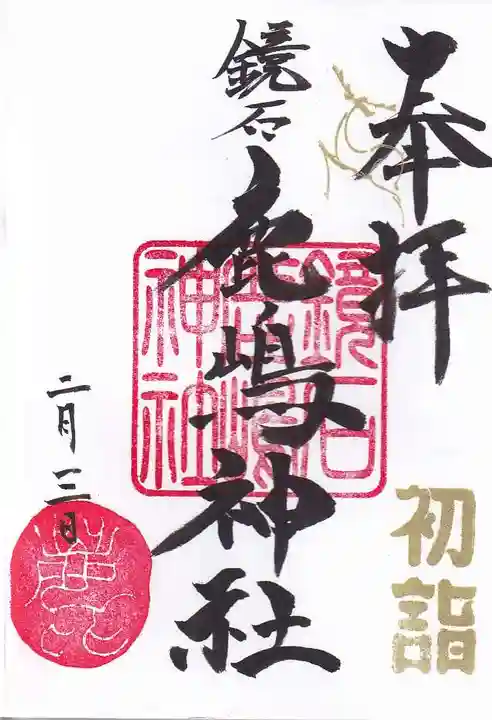 奉拝
初詣
鏡石
鹿嶋神社
鏡石
鹿嶋
神社
二月三日